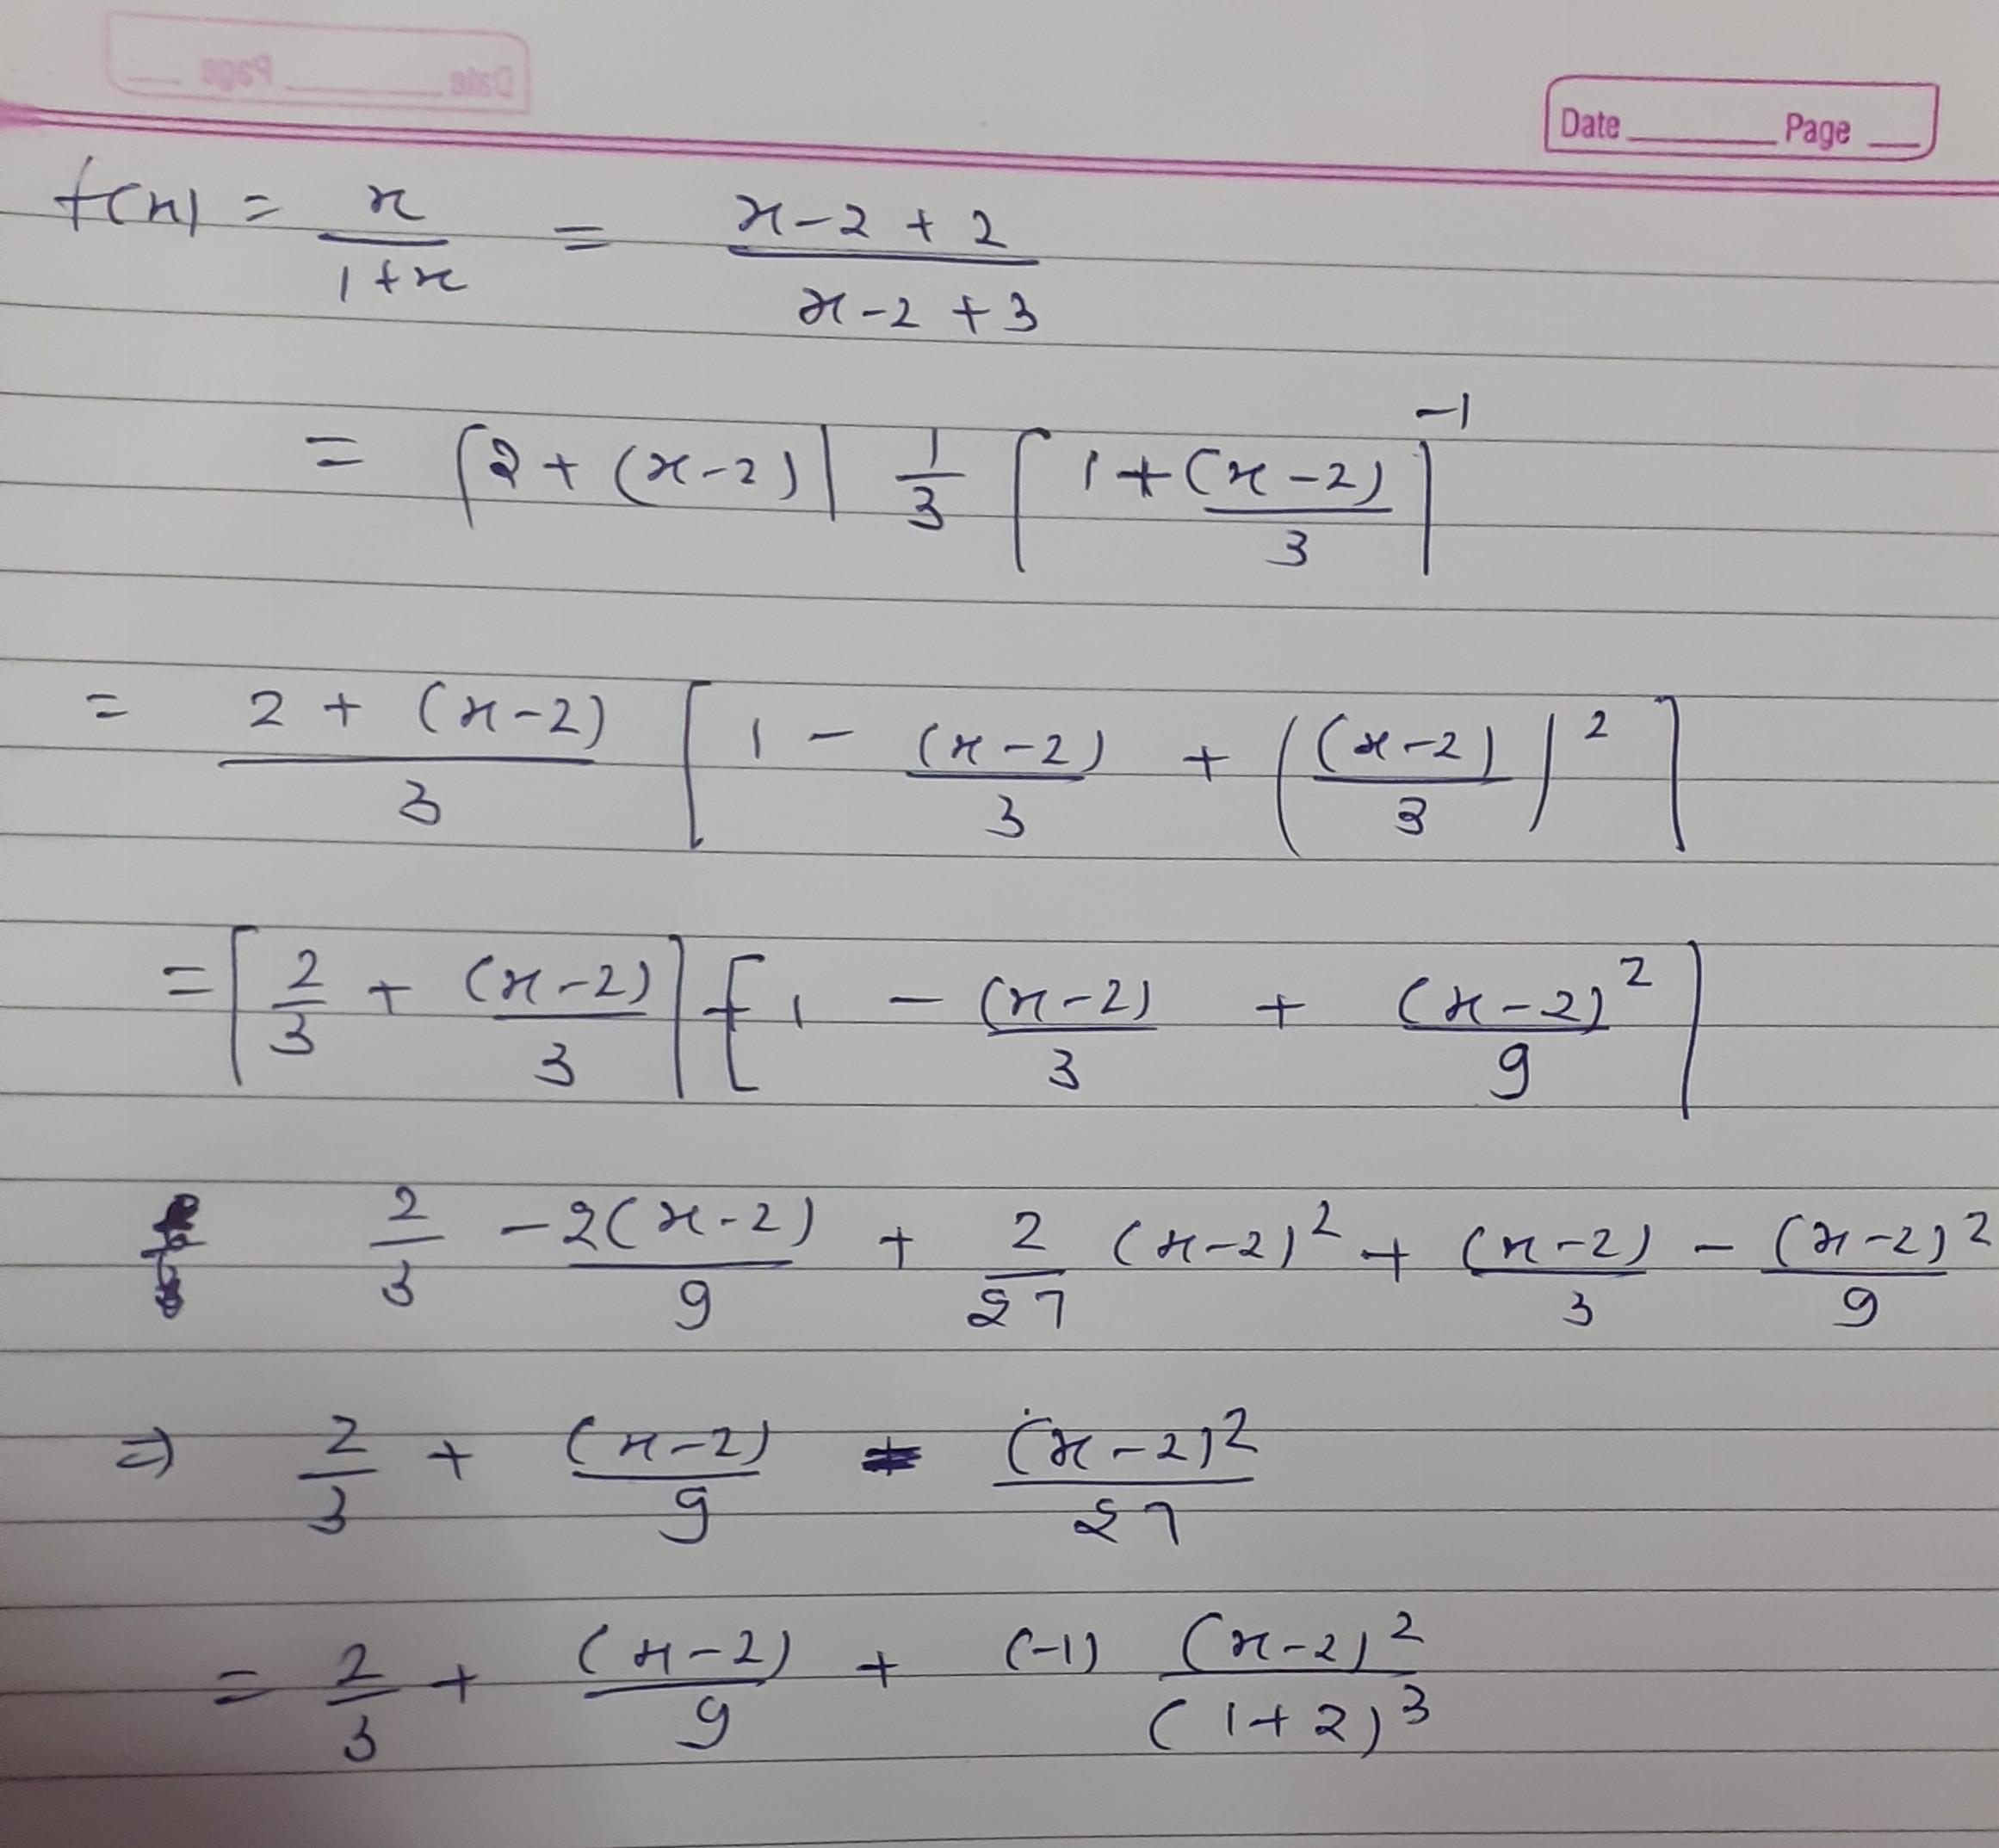 Date Page
Date Page
f(x) = x/(1+x) = (x-2+2)/(x-2+3)
= [2+(x-2)] 1/3 [1+(x-2)/3]^-1
= (2+(x-2))/3 [1 - (x-2)/3 + ((x-2)/3)^2]
= [2/3 + (x-2)/3] [1 - (x-2)/3 + (x-2)^2/9]
2/3 - 2(x-2)/9 + 2/27 (x-2)^2 + (x-2)/3 - (x-2)^2/9
⇒ 2/3 + (x-2)/9 - (x-2)^2/27
= 2/3 + (x-2)/9 + (-1) (x-2)^2/(1+2)^3